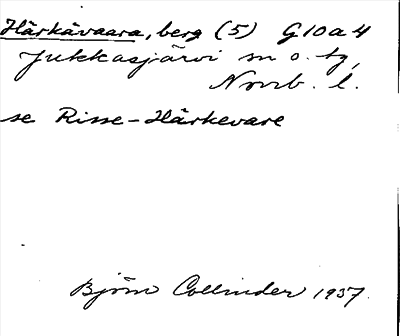 Härkävaara, berg (5) G10a4
Jukkasjärvi sn o. tg,
Norrb. l.
se Risse-Härkevare
Björn Collinder 1937.